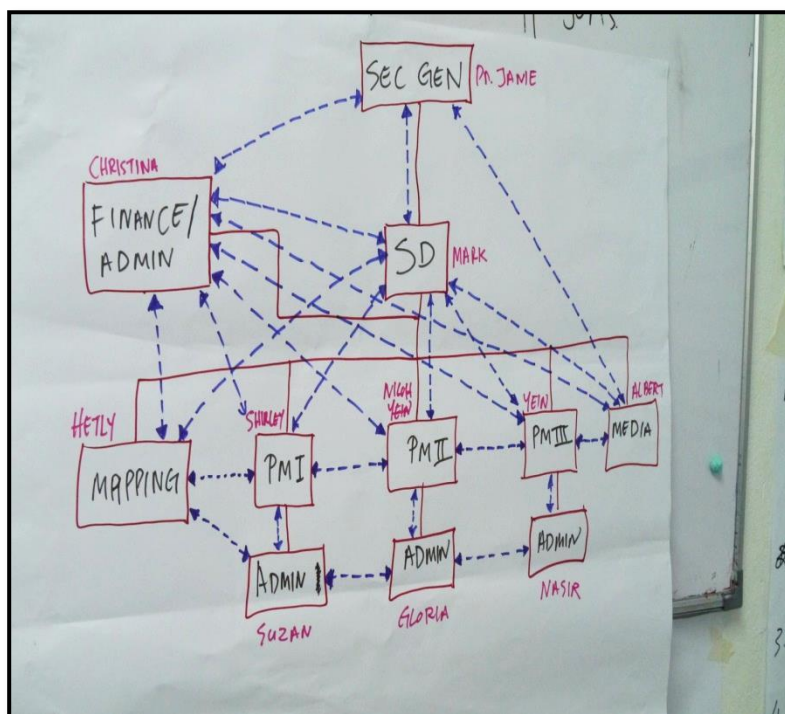 SEC GEN
CHRISTINA
FINANCE/
ADMIN
SD
MARK
HETLY
MAPPING
SHIRLEY
PM I
YEIN
PM II
YEIN
PM III
ALBERT
MEDIA
ADMIN
SUZAN
ADMIN
GLORIA
ADMIN
NASIR